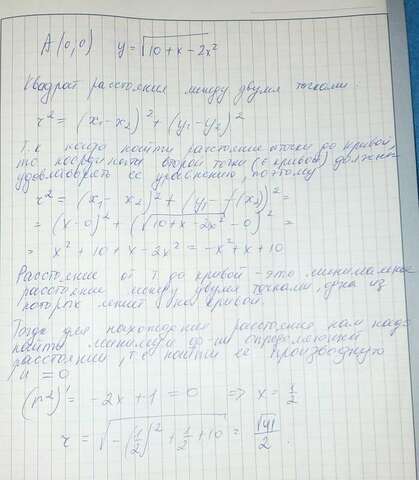 A(0,0) y=√10+x-2x²
Квадрат расстояния между двумя точками:
r² = (x₁-x₂)² + (y₁-y₂)²
Т.к надо найти расстояние от точки до кривой,
то координаты второй точки (∈ кривой) должны
удовлетворять её уравнению, поэтому
r² = (x₁-x₂)² + (y₁-f(x₂))² =
= (x-0)² + (√10+x-2x² -0)² =
= x² + 10 + x - 2x² = -x² + x + 10
Расстояние от т до кривой - это минимальное
расстояние между двумя точками, одна из
которых лежит на кривой.
Тогда для нахождения расстояния нам надо
найти минимум ф-ии определяющей
расстояния, т.е найти её производную
и = 0
(r²)' = -2x+1 = 0 => x = 1/2
r = √-(1/2)² + 1/2 + 10 = √41/2.